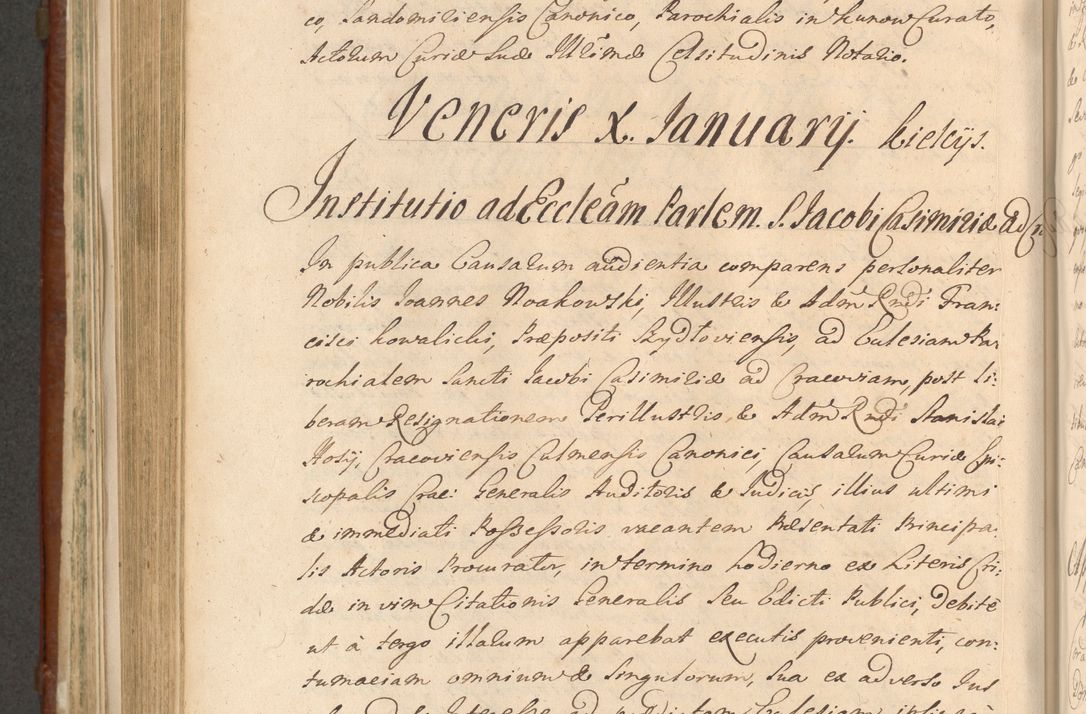 co, Sandomiriensis Canonico, Parochialis in Kunow Curato,
Actorum Curiæ Suæ Illmæ Celsitudinis Notario.
Veneris X. Januarij. Kielcijs.
Institutio ad Eccleam Parlem. S. Jacobi Casimiriæ ad
In publica Causarum audientia comparens personaliter
Nobilis Joannes Noakowski, Illustris & Admˢ Rndi Fran:
cisci Kowalicki, Præpositi Szydłoviensis, ad Eclesiam Pa
rochialem Sancti Jacobi Casimiriæ ad Cracoviam, post li:
beram Resignationem Perillustris & Adm Rndi Stanislai
Hosij, Cracoviensis Culmensis Canonici, Causarum Curiæ Epi:
scopalis Crac: Generalis Auditoris & Judicis, illius ultimi
& immediati Possessoris vacantem Præsentati Principa
lis Actoris Procurator, in termino hodierno ex Literis Cri:
dæ in vim Citationis Generalis Seu Edicti Publici, debitè
ut à tergo illarum apparebat executis provenienti, con:
tumaciam omnium & Singulorum, Sua ex adverso Jus